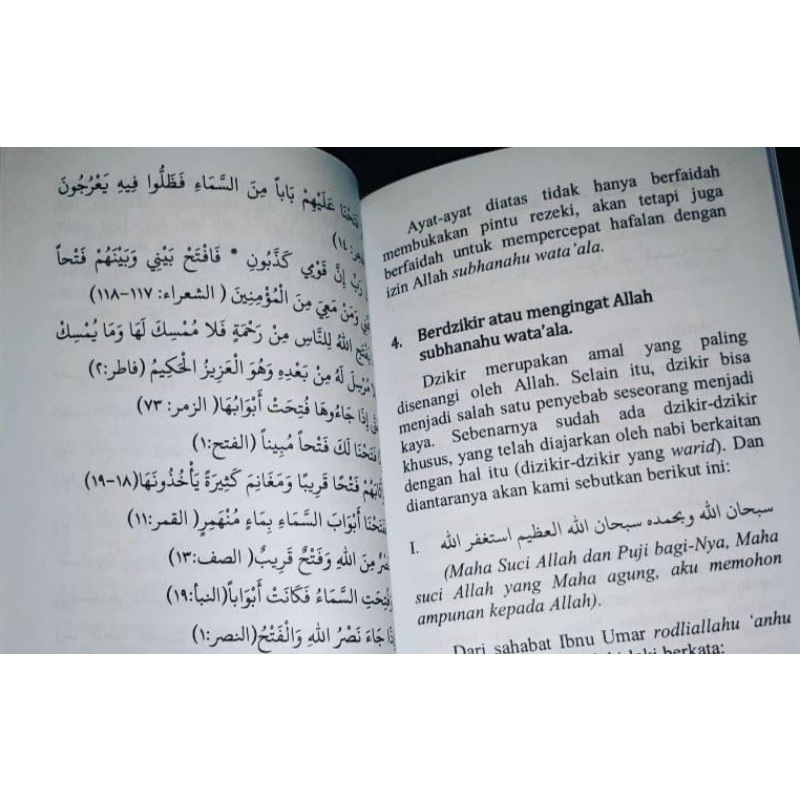 عَلَيْهِمْ بَاباً مِنَ السَّمَاءِ فَظَلُّوا فِيهِ يَعْرُجُونَ
١٤)
رَبِّ إِنَّ قَوْمِي كَذَّبُونِ * فَافْتَحْ بَيْنِي وَبَيْنَهُمْ فَتْحاً
وَمَنْ مَعِيَ مِنَ الْمُؤْمِنِينَ ( الشعراء: ١١٧-١١٨)
اللهُ لِلنَّاسِ مِنْ رَحْمَةٍ فَلَا مُمْسِكَ لَهَا وَمَا يُمْسِكْ
مُرْسِلَ لَهُ مِنْ بَعْدِهِ وَهُوَ الْعَزِيزُ الْحَكِيمُ (فاطر:٢)
إِذَا جَاءُوهَا فُتِحَتْ أَبْوَابُهَا( الزمر: ٧٣)
لَكَ فَتْحاً مُبِيناً (الفتح:١)
فَتْحًا قَرِيبًا وَمَغَانِمَ كَثِيرَةً يَأْخُذُونَهَا(١٨-١٩)
أَبْوَابَ السَّمَاءِ بِمَاءٍ مُنْهَمِرٍ (القمر:١١)
مِنَ اللهِ وَفَتْحٌ قَرِيبٌ( الصف:١٣)
السَّمَاءُ فَكَانَتْ أَبْوَاباً(النبأ:١٩)
جَاءَ نَصْرُ اللهِ وَالْفَتْحُ(النصر:١)
Ayat-ayat diatas tidak hanya berfaidah
membukakan pintu rezeki, akan tetapi juga
berfaidah untuk mempercepat hafalan dengan
izin Allah subhanahu wata'ala.
4. Berdzikir atau mengingat Allah
subhanahu wata'ala.
Dzikir merupakan amal yang paling
disenangi oleh Allah. Selain itu, dzikir bisa
menjadi salah satu penyebab seseorang menjadi
kaya. Sebenarnya sudah ada dzikir-dzikir
khusus, yang telah diajarkan oleh nabi berkaitan
dengan hal itu (dizikir-dzikir yang warid). Dan
diantaranya akan kami sebutkan berikut ini:
I. سبحان الله وبحمده سبحان الله العظيم استغفر الله
(Maha Suci Allah dan Puji bagi-Nya, Maha
suci Allah yang Maha agung, aku memohon
ampunan kepada Allah).
Dari sahabat Ibnu Umar rodliallahu 'anhu
berkata: